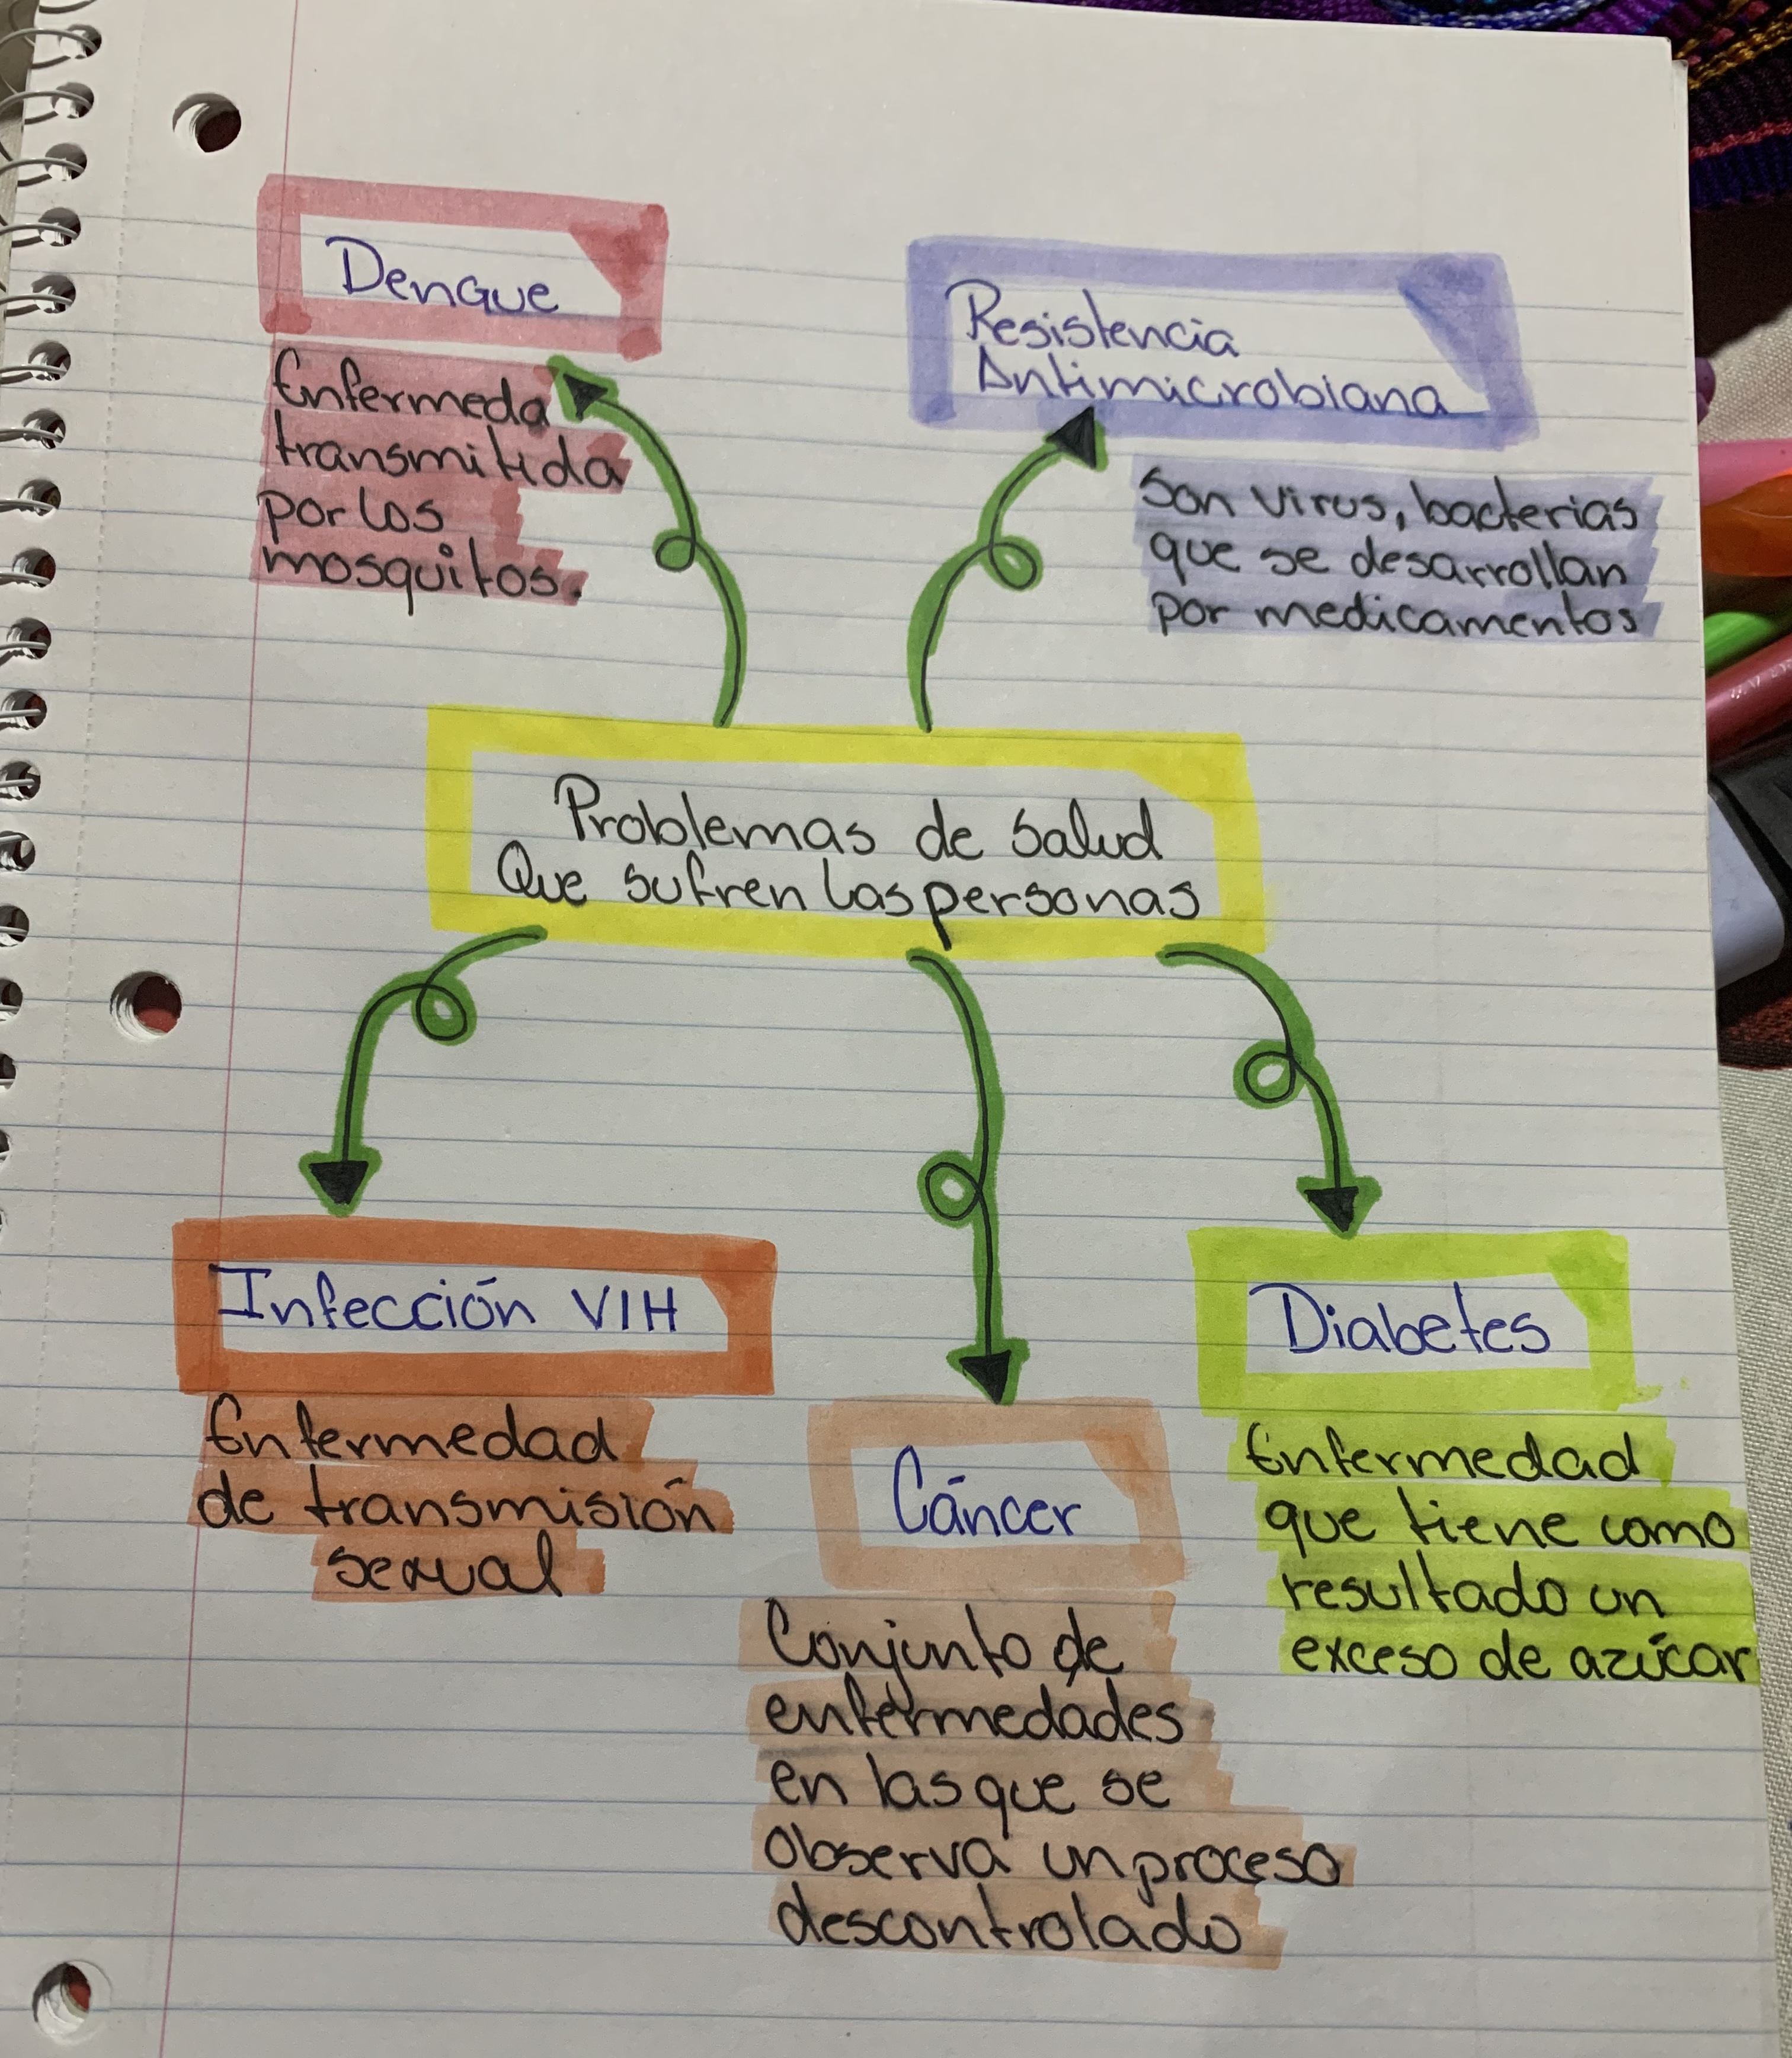 Dengue
Enfermeda
transmitida
por los
mosquitos.
Resistencia
Antimicrobiana
Son virus, bacterias
que se desarrollan
por medicamentos
Problemas de salud
Que sufren las personas
Infección VIH
Enfermedad
de transmisión
sexual
Cáncer
Conjunto de
enfermedades
en las que se
observa un proceso
descontrolado
Diabetes
Enfermedad
que tiene como
resultado un
exceso de azúcar